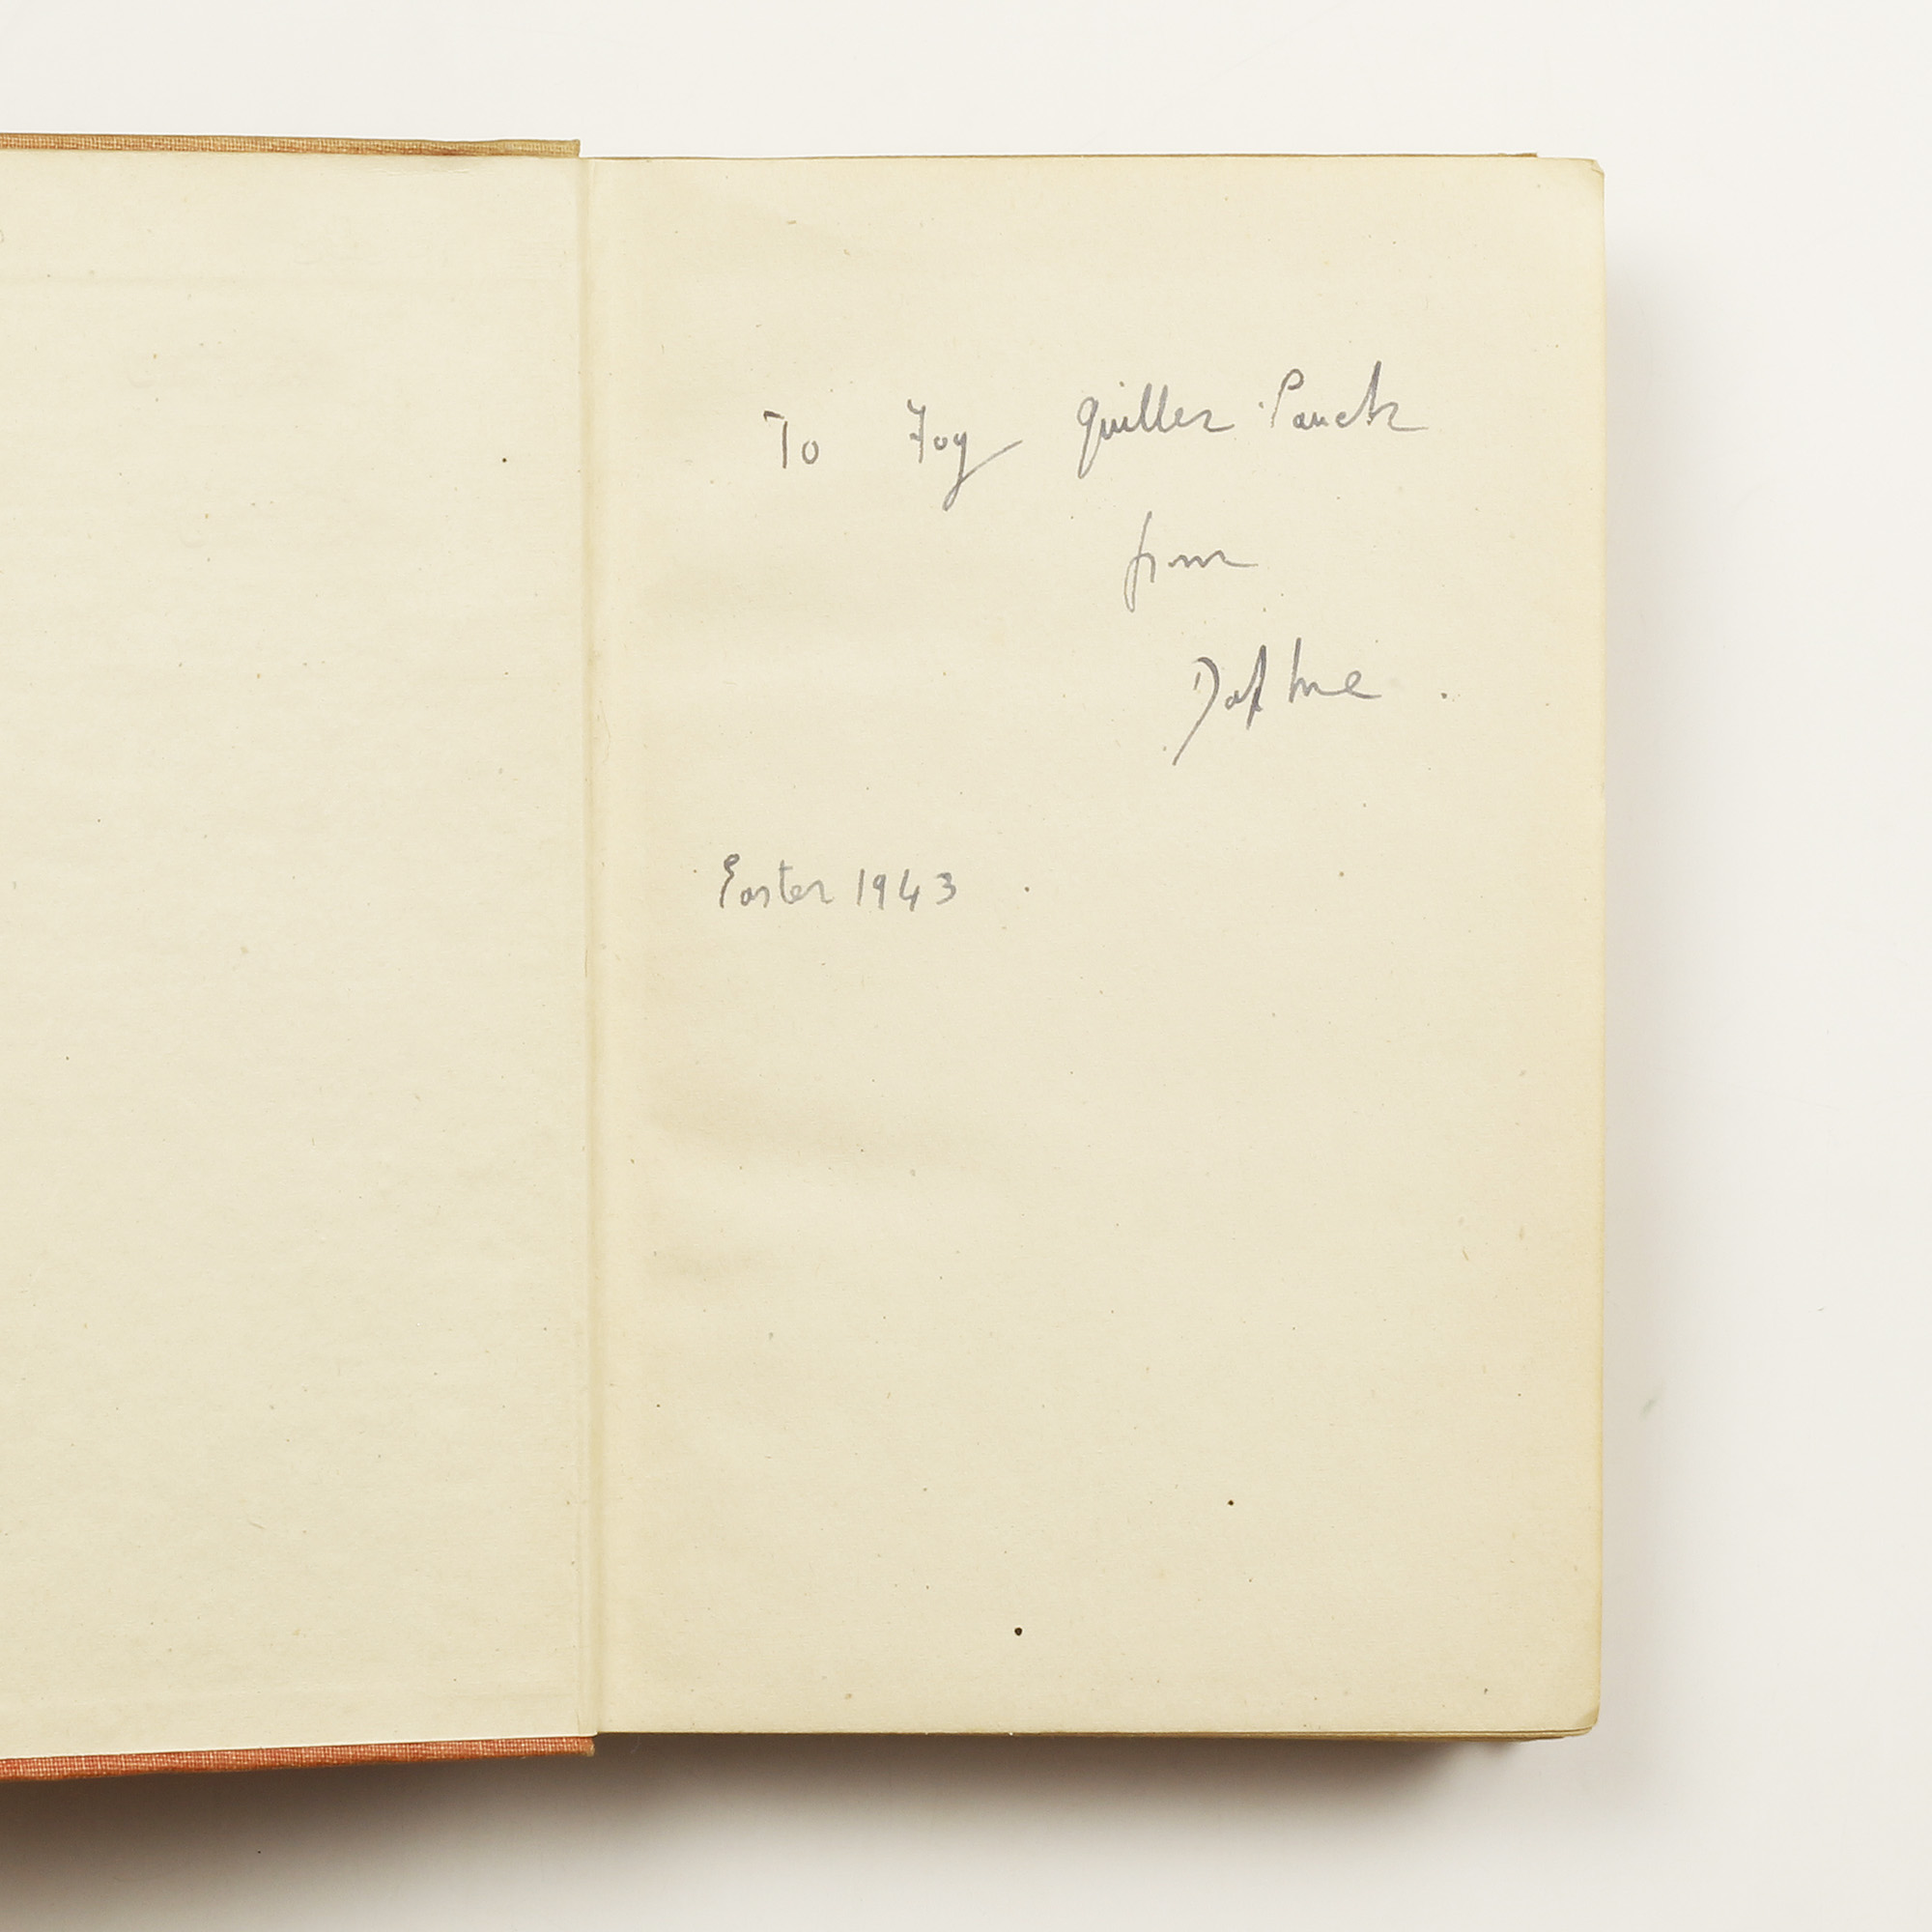 To Foy Quiller Couch
from
Daphne.
Easter 1943.